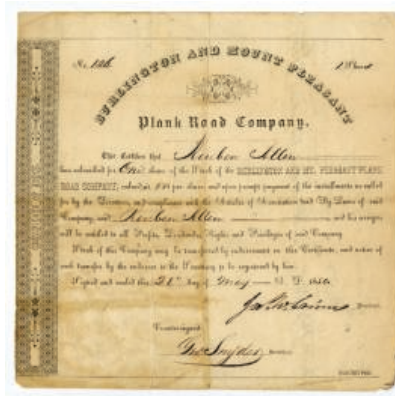 No. 126
1 Share
BURLINGTON AND MOUNT PLEASANT
Plank Road Company.
This Certifies that Reuben Allen
has subscribed for One share of the Stock of the BURLINGTON AND MT. PLEASANT PLANK
ROAD COMPANY, valued at $50 per share and upon prompt payment of the installments as called
for by the Directors, and compliance with the Articles of Association and By Laws of said
Company, said Reuben Allen and his assigns
will be entitled to all Profits, Dividends, Rights and Privileges of said Company
Stock of this Company may be transferred by indorsement on this Certificate, and notice of
such transfer by the indorser to the Secretary to be registered by him.
Signed and sealed this 21st day of May A. D. 1850
President.
Countersigned
Geo Snyder Secretary